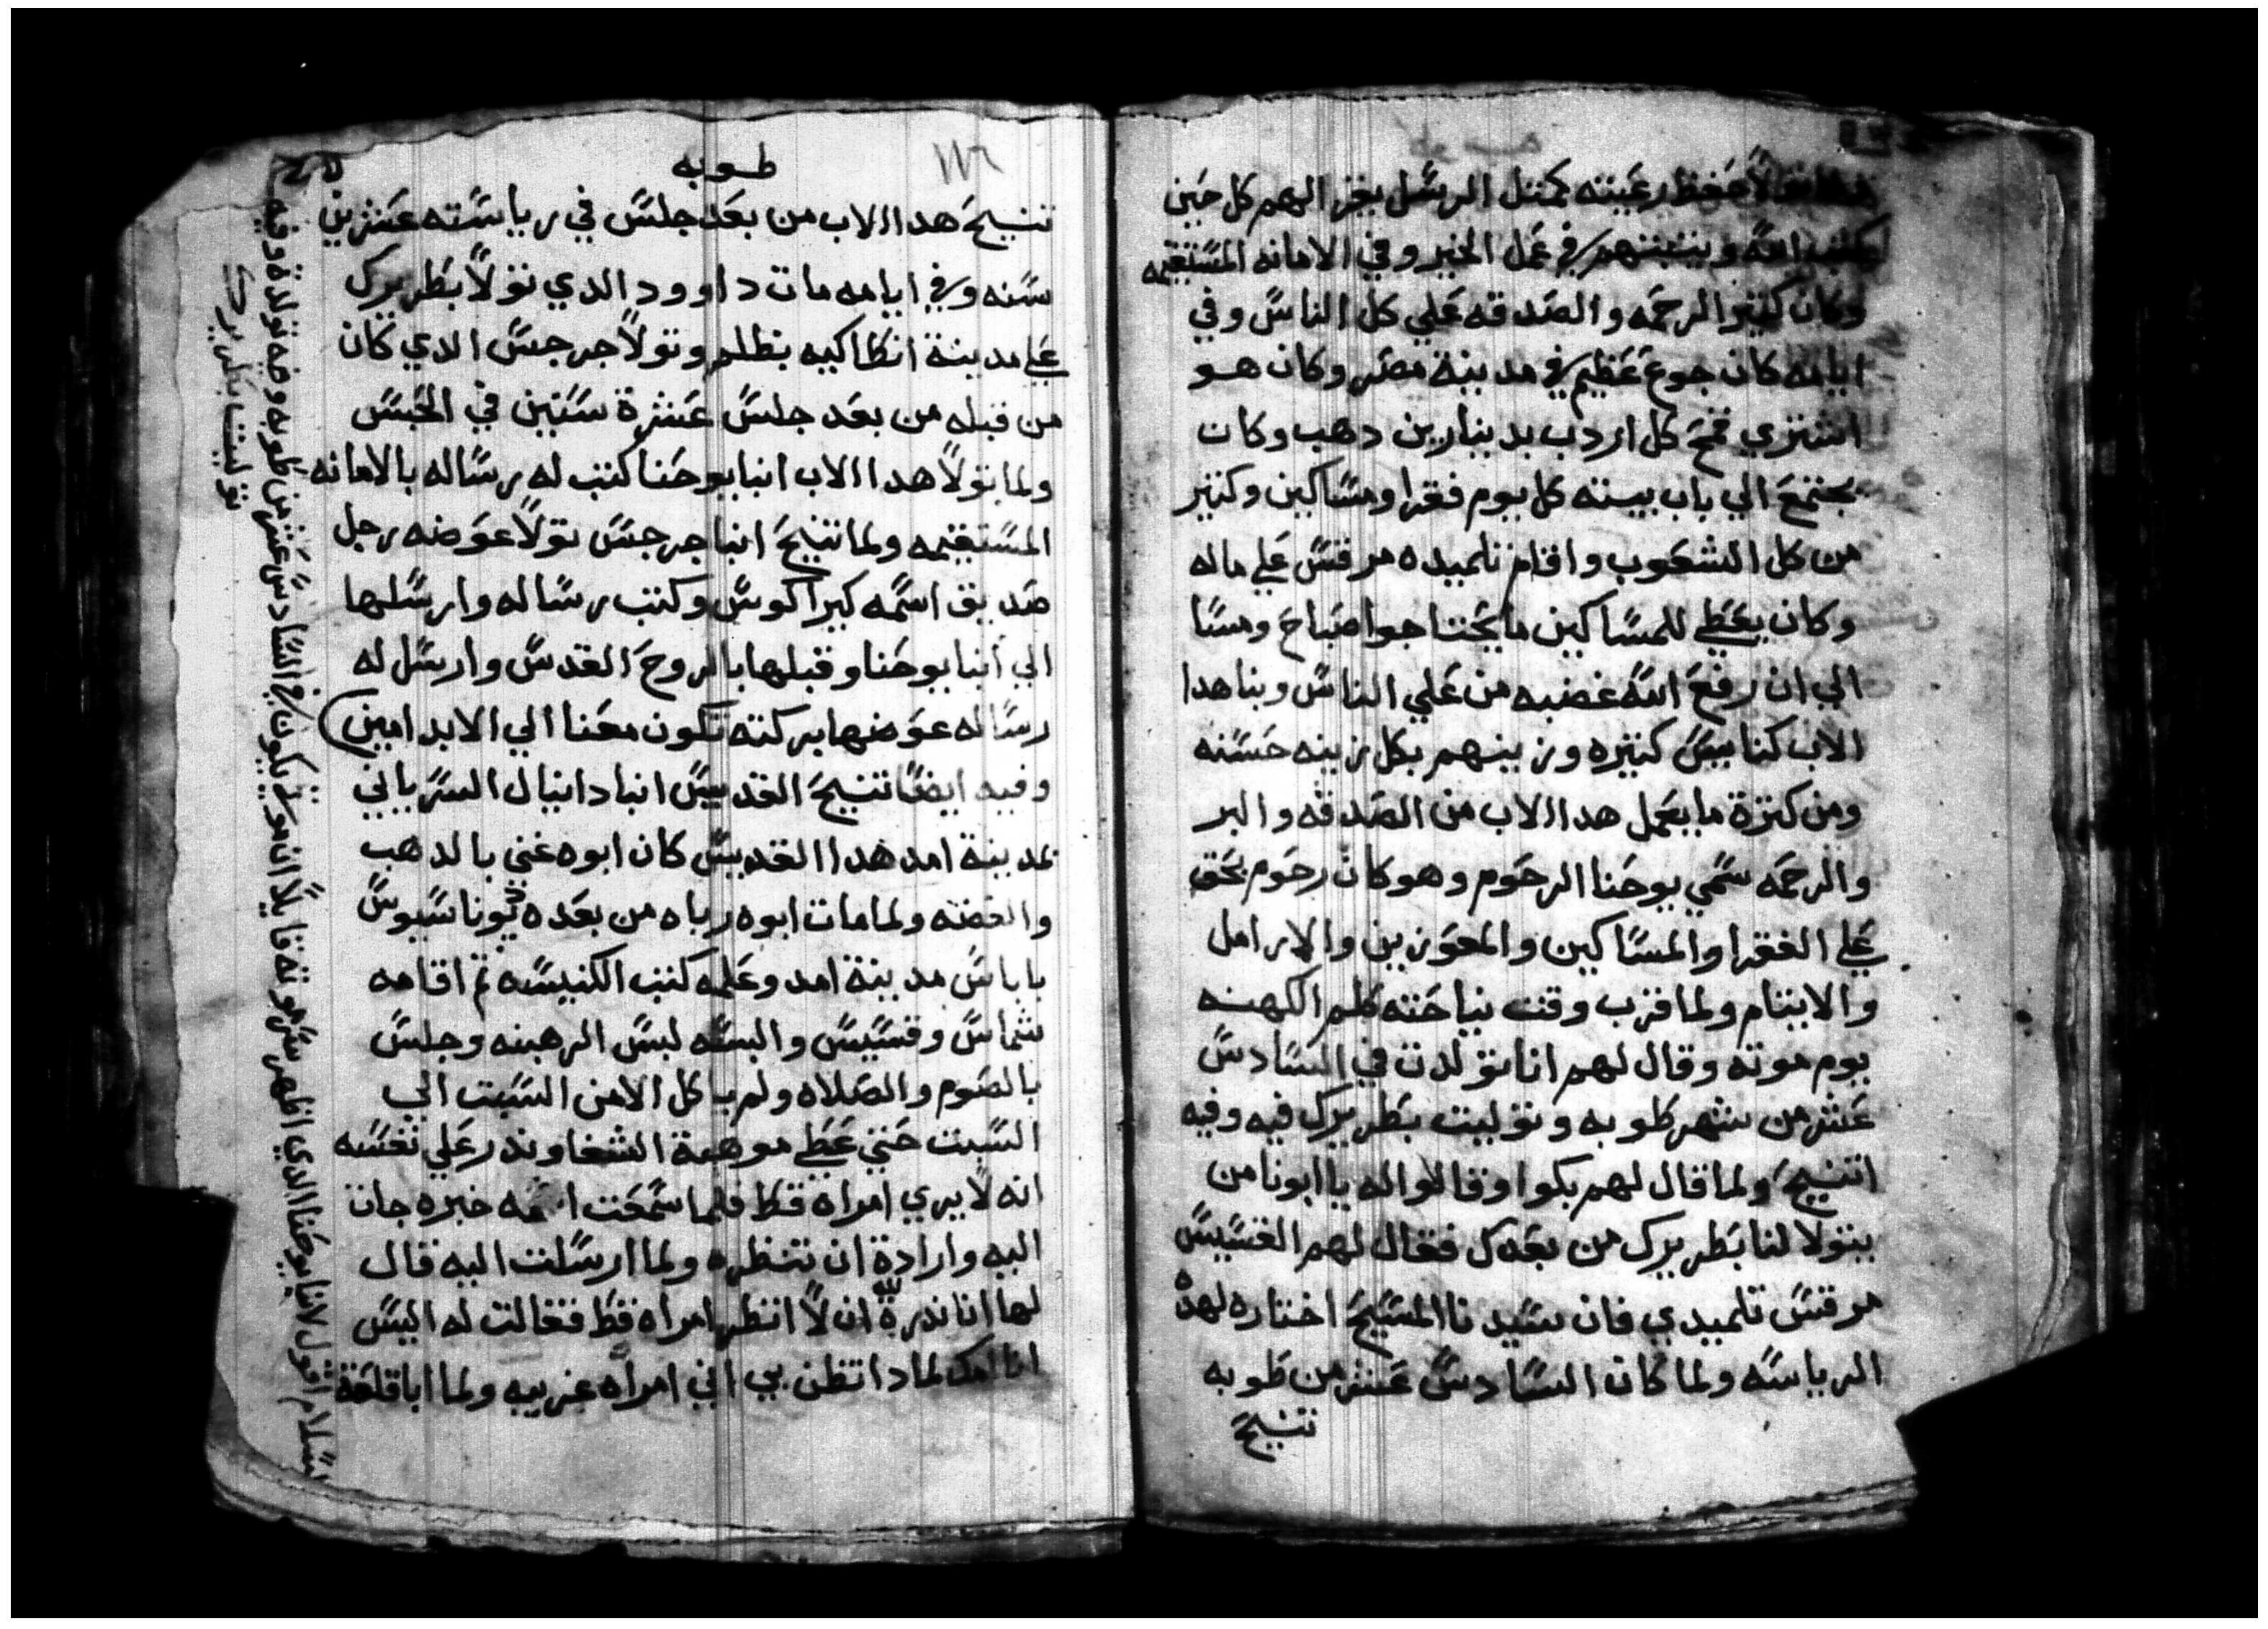 حفظ رعيته كمتل الرسل يقرا اليهم كل حين
كتب الله ويتبتهم في عمل الخير وفي الامانه المستقيمه
وكان كتير الرحمه والصدقه علي كل الناس وفي
ايامه كان جوع عظيم في مدينة مصر وكان هو
اشتري قمح كل اردب بدينارين دهب وكان
يجتمع الي باب بيته كل يوم فقرا ومساكين وكتير
من كل الشعوب واقام تلميده مرقس علي ماله
وكان يعطي للمساكين ما يحتاجوا صباح ومسا
الي ان رفع الله غضبه من علي الناس وبنا هدا
الاب كنايس كتيره وزينهم بكل زينه حسنه
ومن كترة ما يعمل هدا الاب من الصدقه والبر
والرحمه سمي يوحنا الرحوم وهو كان رحوم بحق
علي الفقرا والمساكين والمعوزين والارامل
والايتام ولما قرب وقت نياحته كلم الكهنه
يوم موته وقال لهم انا تولدت في السادس
عشر من شهر طوبه وتوليت بطريرك فيه وفيه
اتنيح ولما قال لهم بكوا وقالوا له يا ابونا من
يتولا لنا بطريرك من بعدك فقال لهم القسيس
مرقس تلميدي فان سيدنا المسيح اختاره لهده
الرياسه ولما كان السادس عشر من طوبه
تنيح
طوبه
تنيح هدا الاب من بعد جلس في رياسته عشرين
سنه وفي ايامه مات داوود الدي تولا بطريرك
علي مدينة انطاكيه بظلم وتولا جرجس الدي كان
من قبله من بعد جلس عشرة سنين في الحبس
ولما تولا هدا الاب انبا يوحنا كتب له رساله بالامانه
المستقيمه ولما تنيح انبا جرجس تولا عوضه رجل
صديق اسمه كيراكوس وكتب رساله وارسلها
الي انبا يوحنا وقبلها بالروح القدس وارسل له
رساله عوضها بركته تكون معنا الي الابد امين
وفيه ايضا تنيح القديس انبا دانيال السرياني
بمدينة امد هدا القديس كان ابوه غني بالدهب
والفضه ولما مات ابوه رباه من بعده تيوناسيوس
باباس مدينة امد وعلمه كتب الكنيسه تم اقامه
شماس وقسيس والبسه لبس الرهبنه وجلس
بالصوم والصلاه ولم ياكل الا من السبت الي
السبت حتي عطي موهبة الشفا وندر علي نفسه
انه لا يري امراه قط فلما سمعت امه خبره جات
اليه وارادة ان تنظره ولما ارسلت اليه قال
لها انا ندرة لله ان لا انظر امراه قط فقالت له اليس
انا امك لمادا تظن بي اني امراه غريبه ولما ابا قلعة
السلام اقول لانبا يوحنا الدي اظهر سر موته قايلا ان موتي يكون في السادس عشر من طوبه وفيه تولدة وفيه
توليت بطريرك